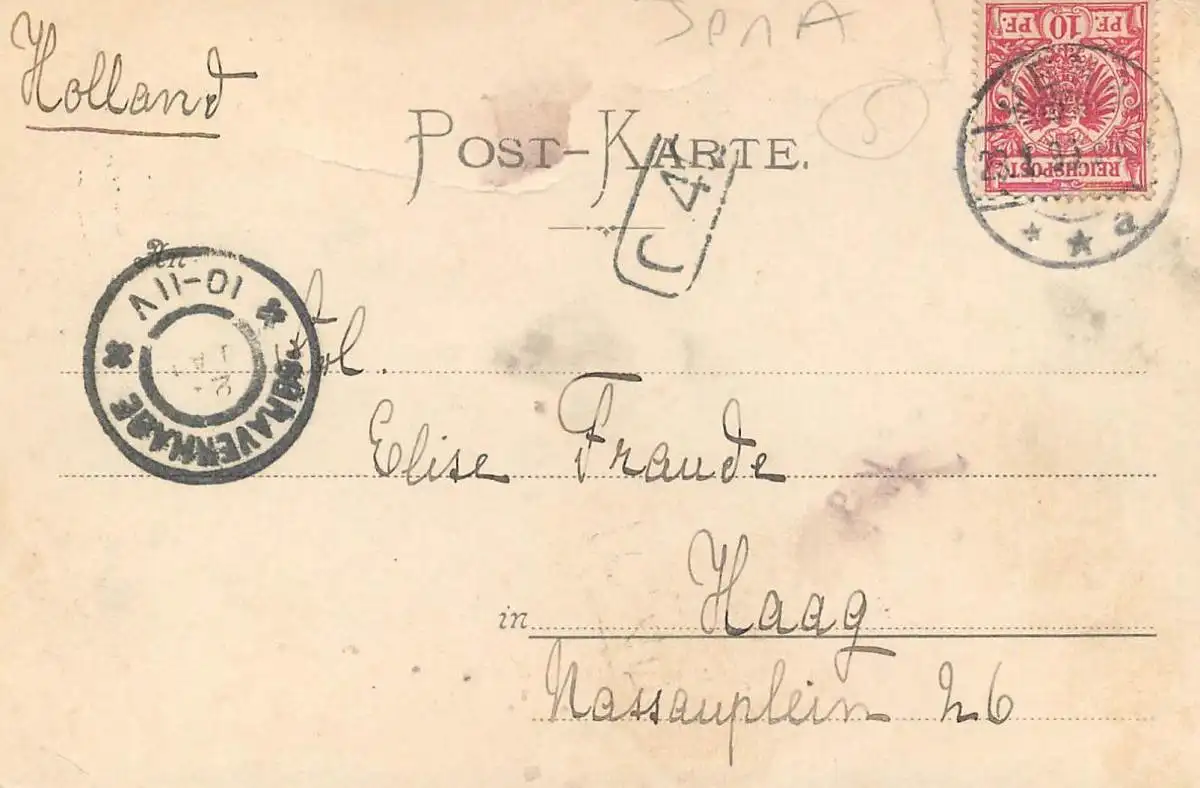 Jena
Holland
PF. 10 PF.
REICHSPOST
5
POST-KARTE.
C 4
a
An
10-11 V
'SGRAVENHAGE
Frl.
Elise Fraude
in Haag
Nassauplein 26